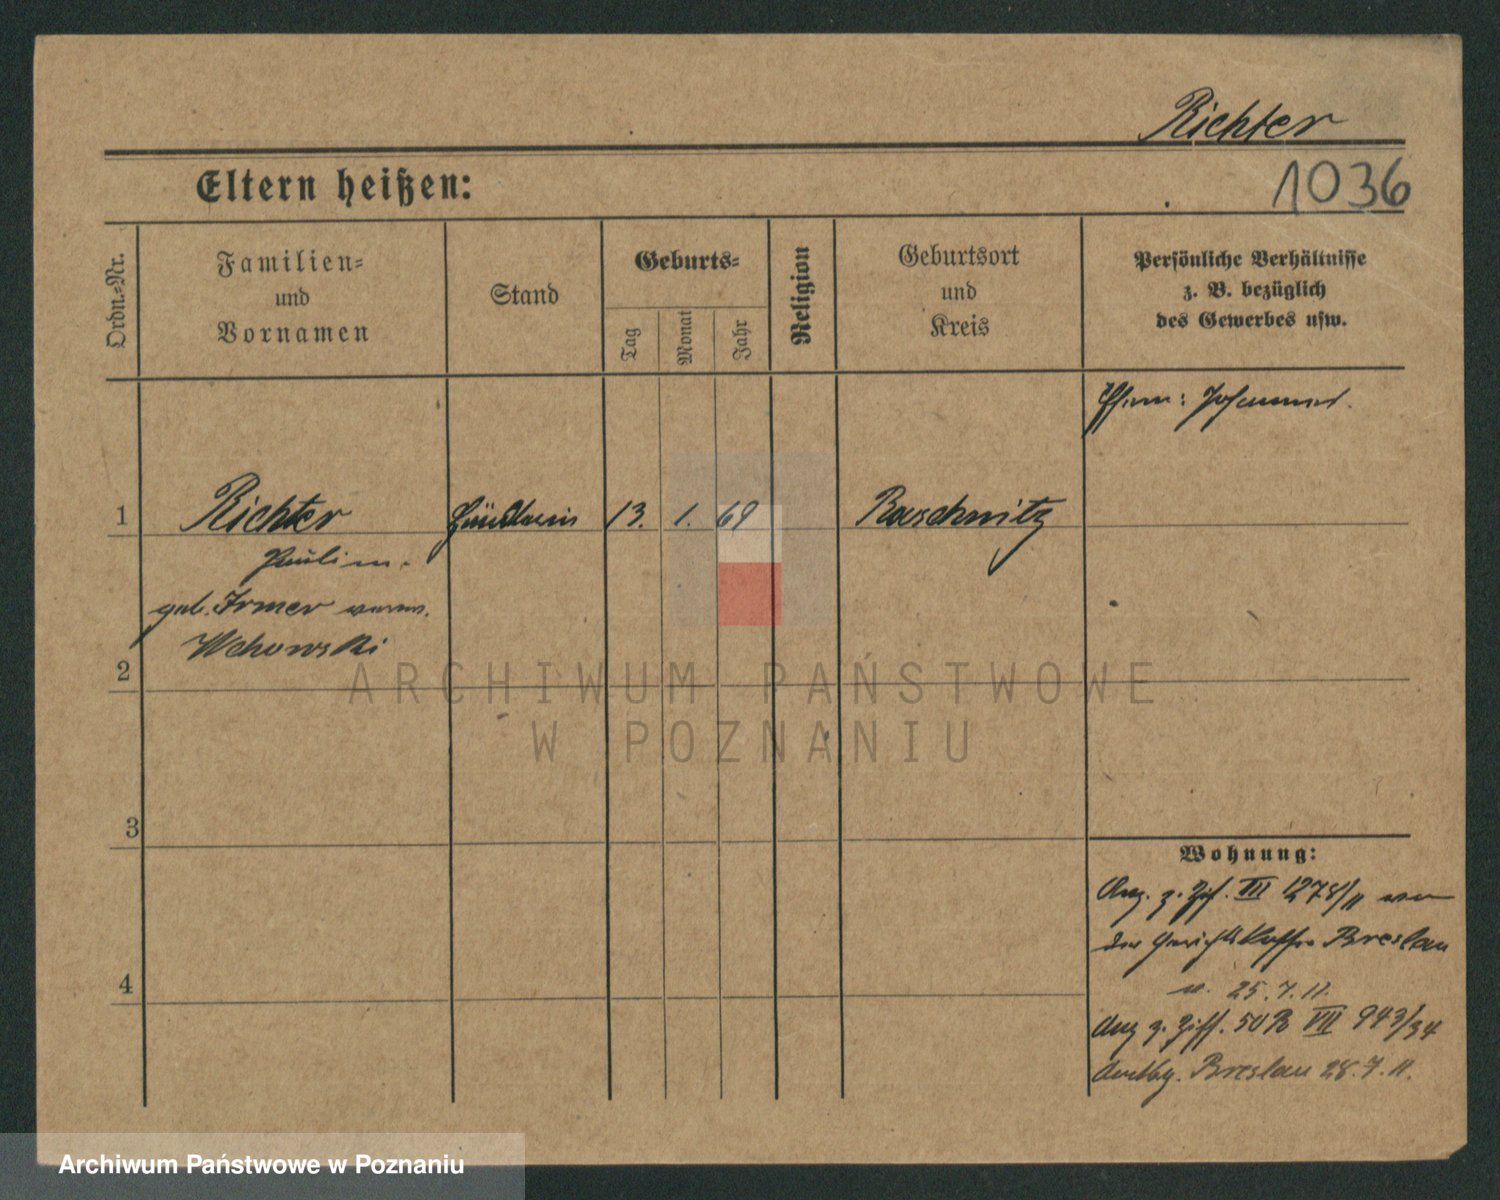 Richter
Eltern heißen:
1036
Ordn.-Nr.
Familien-
und
Vornamen
Stand
Geburts-
Tag
Monat
Jahr
Religion
Geburtsort
und
Kreis
Persönliche Verhältnisse
z. B. bezüglich
des Gewerbes usw.
1
Richter
13. 1. 69
Raschwitz
geb. Irmer
Wchowski
2
3
4
Wohnung:
Ang. z. Zif. VII 1278/11
der Gerichtskasse Breslau
v. 25.7.11.
Ang z. Ziff. 50B VIII 943/34
Breslau 28.7.11.
ARCHIWUM PAŃSTWOWE
W POZNANIU
Archiwum Państwowe w Poznaniu